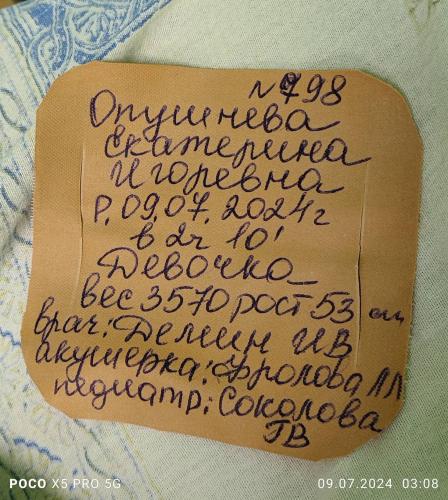 № 798
Опушнева
Екатерина
Игоревна
Р. 09.07.2024г
в 2ч 10'
Девочка
вес 3570 рост 53 см
врач: Демин ИВ
акушерка: Фролова ЛЛ
педиатр: Соколова
ГВ
POCO X5 PRO 5G
09.07.2024 03:08